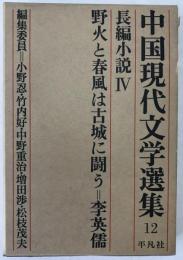 中国現代文学選集
12
平凡社
長編小説Ⅳ
野火と春風は古城に闘う＝李英儒
編集委員＝小野忍・竹内好・中野重治・増田渉・松枝茂夫